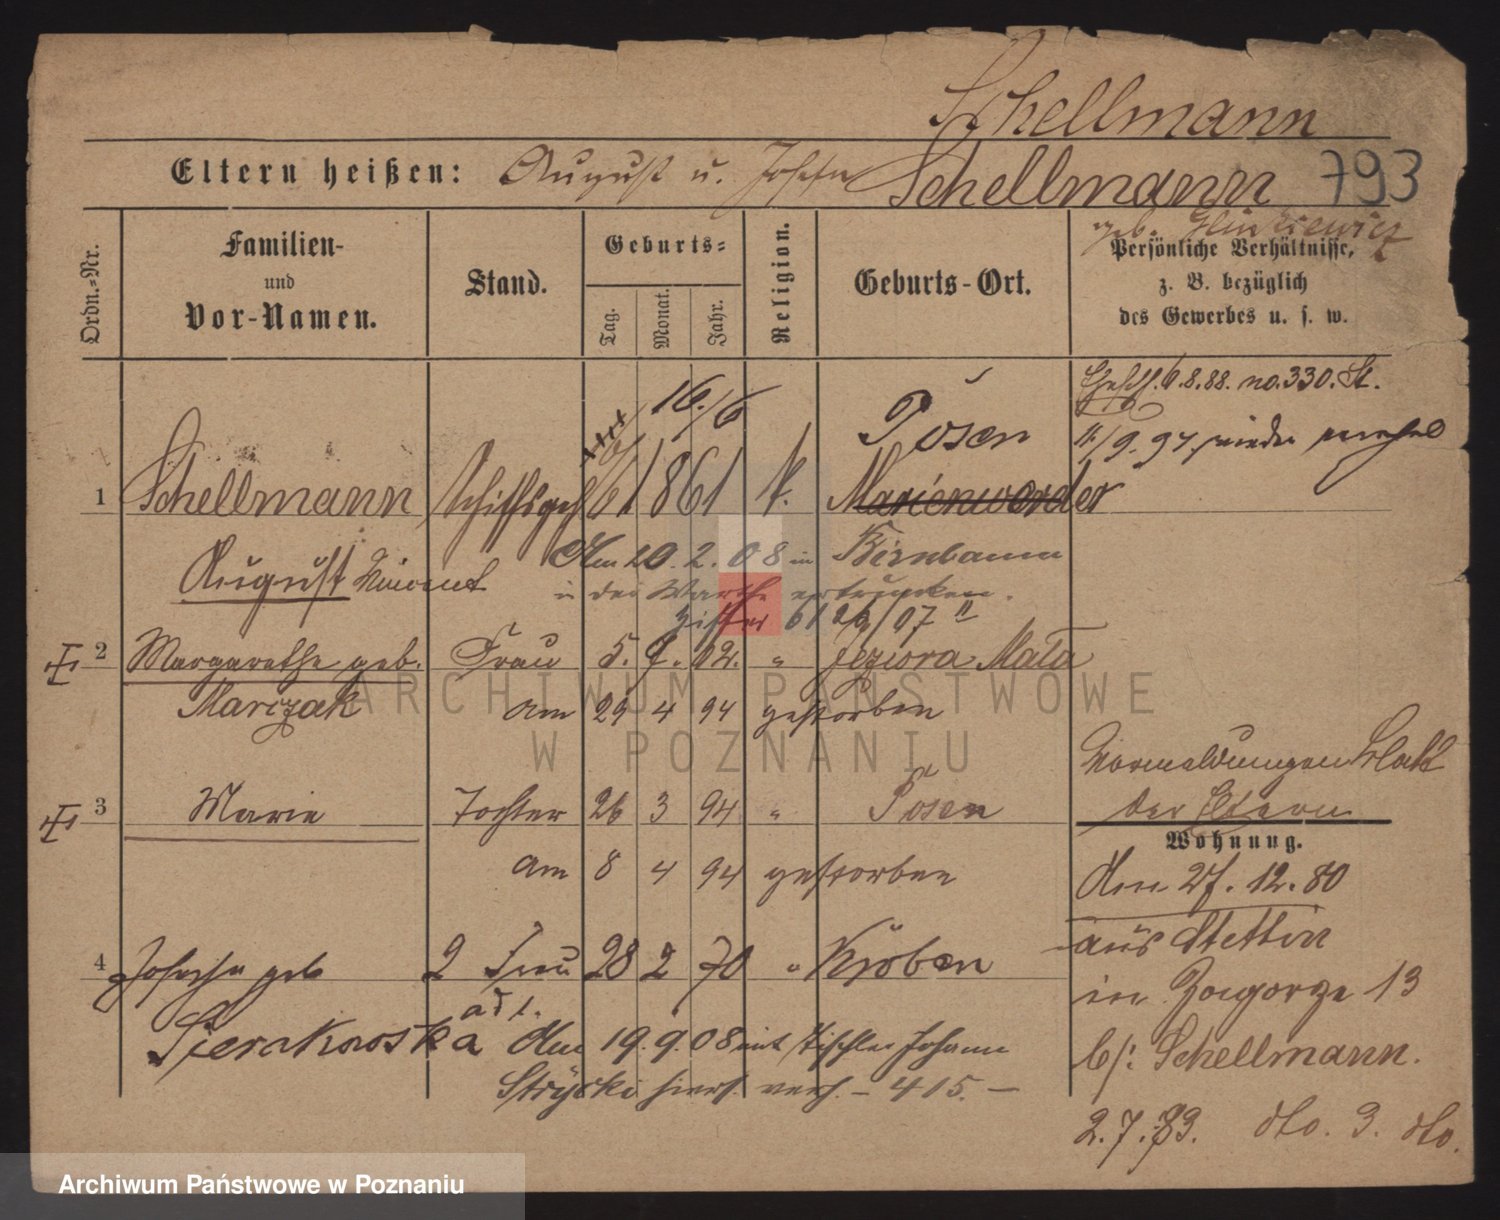 Schellmann
Eltern heißen: August u. Josefa Schellmann 793
geb. Glinkiewicz
Ordn.-Nr.
Familien- und Vor-Namen.
Stand.
Geburts-
Tag.
Monat.
Jahr.
Religion.
Geburts-Ort.
Persönliche Verhältnisse,
z. B. bezüglich
des Gewerbes u. s. w.
6.8.88. no. 330. St.
16./6 Posen
11/9. 97. wieder
1 Schellmann Schiffsgeh 6 1861 k. Marienwerder
August Vincent
Am 20.2.08 in Birnbaum
in der Warthe ertrunken.
2 Margarethe geb. Frau 5. 7. 02. " Jeziora Mała
Marczak am 29 4 94 gestorben
3 Marie Tochter 26 3 94 " Posen
am 8 4 94 gestorben
4 Josepha geb 2 Frau 28 2 70 " Kröben
Sierakowska
Am 19.9.08 mit Tischler Johann
Stryski hier verh. – 415. –
der Eltern
Wohnung.
den 27. 12. 80
aus Stettin
in Zagorze 13
b/: Schellmann.
2.7.83. dto. 3. dto.
ARCHIWUM PAŃSTWOWE
W POZNANIU
Archiwum Państwowe w Poznaniu